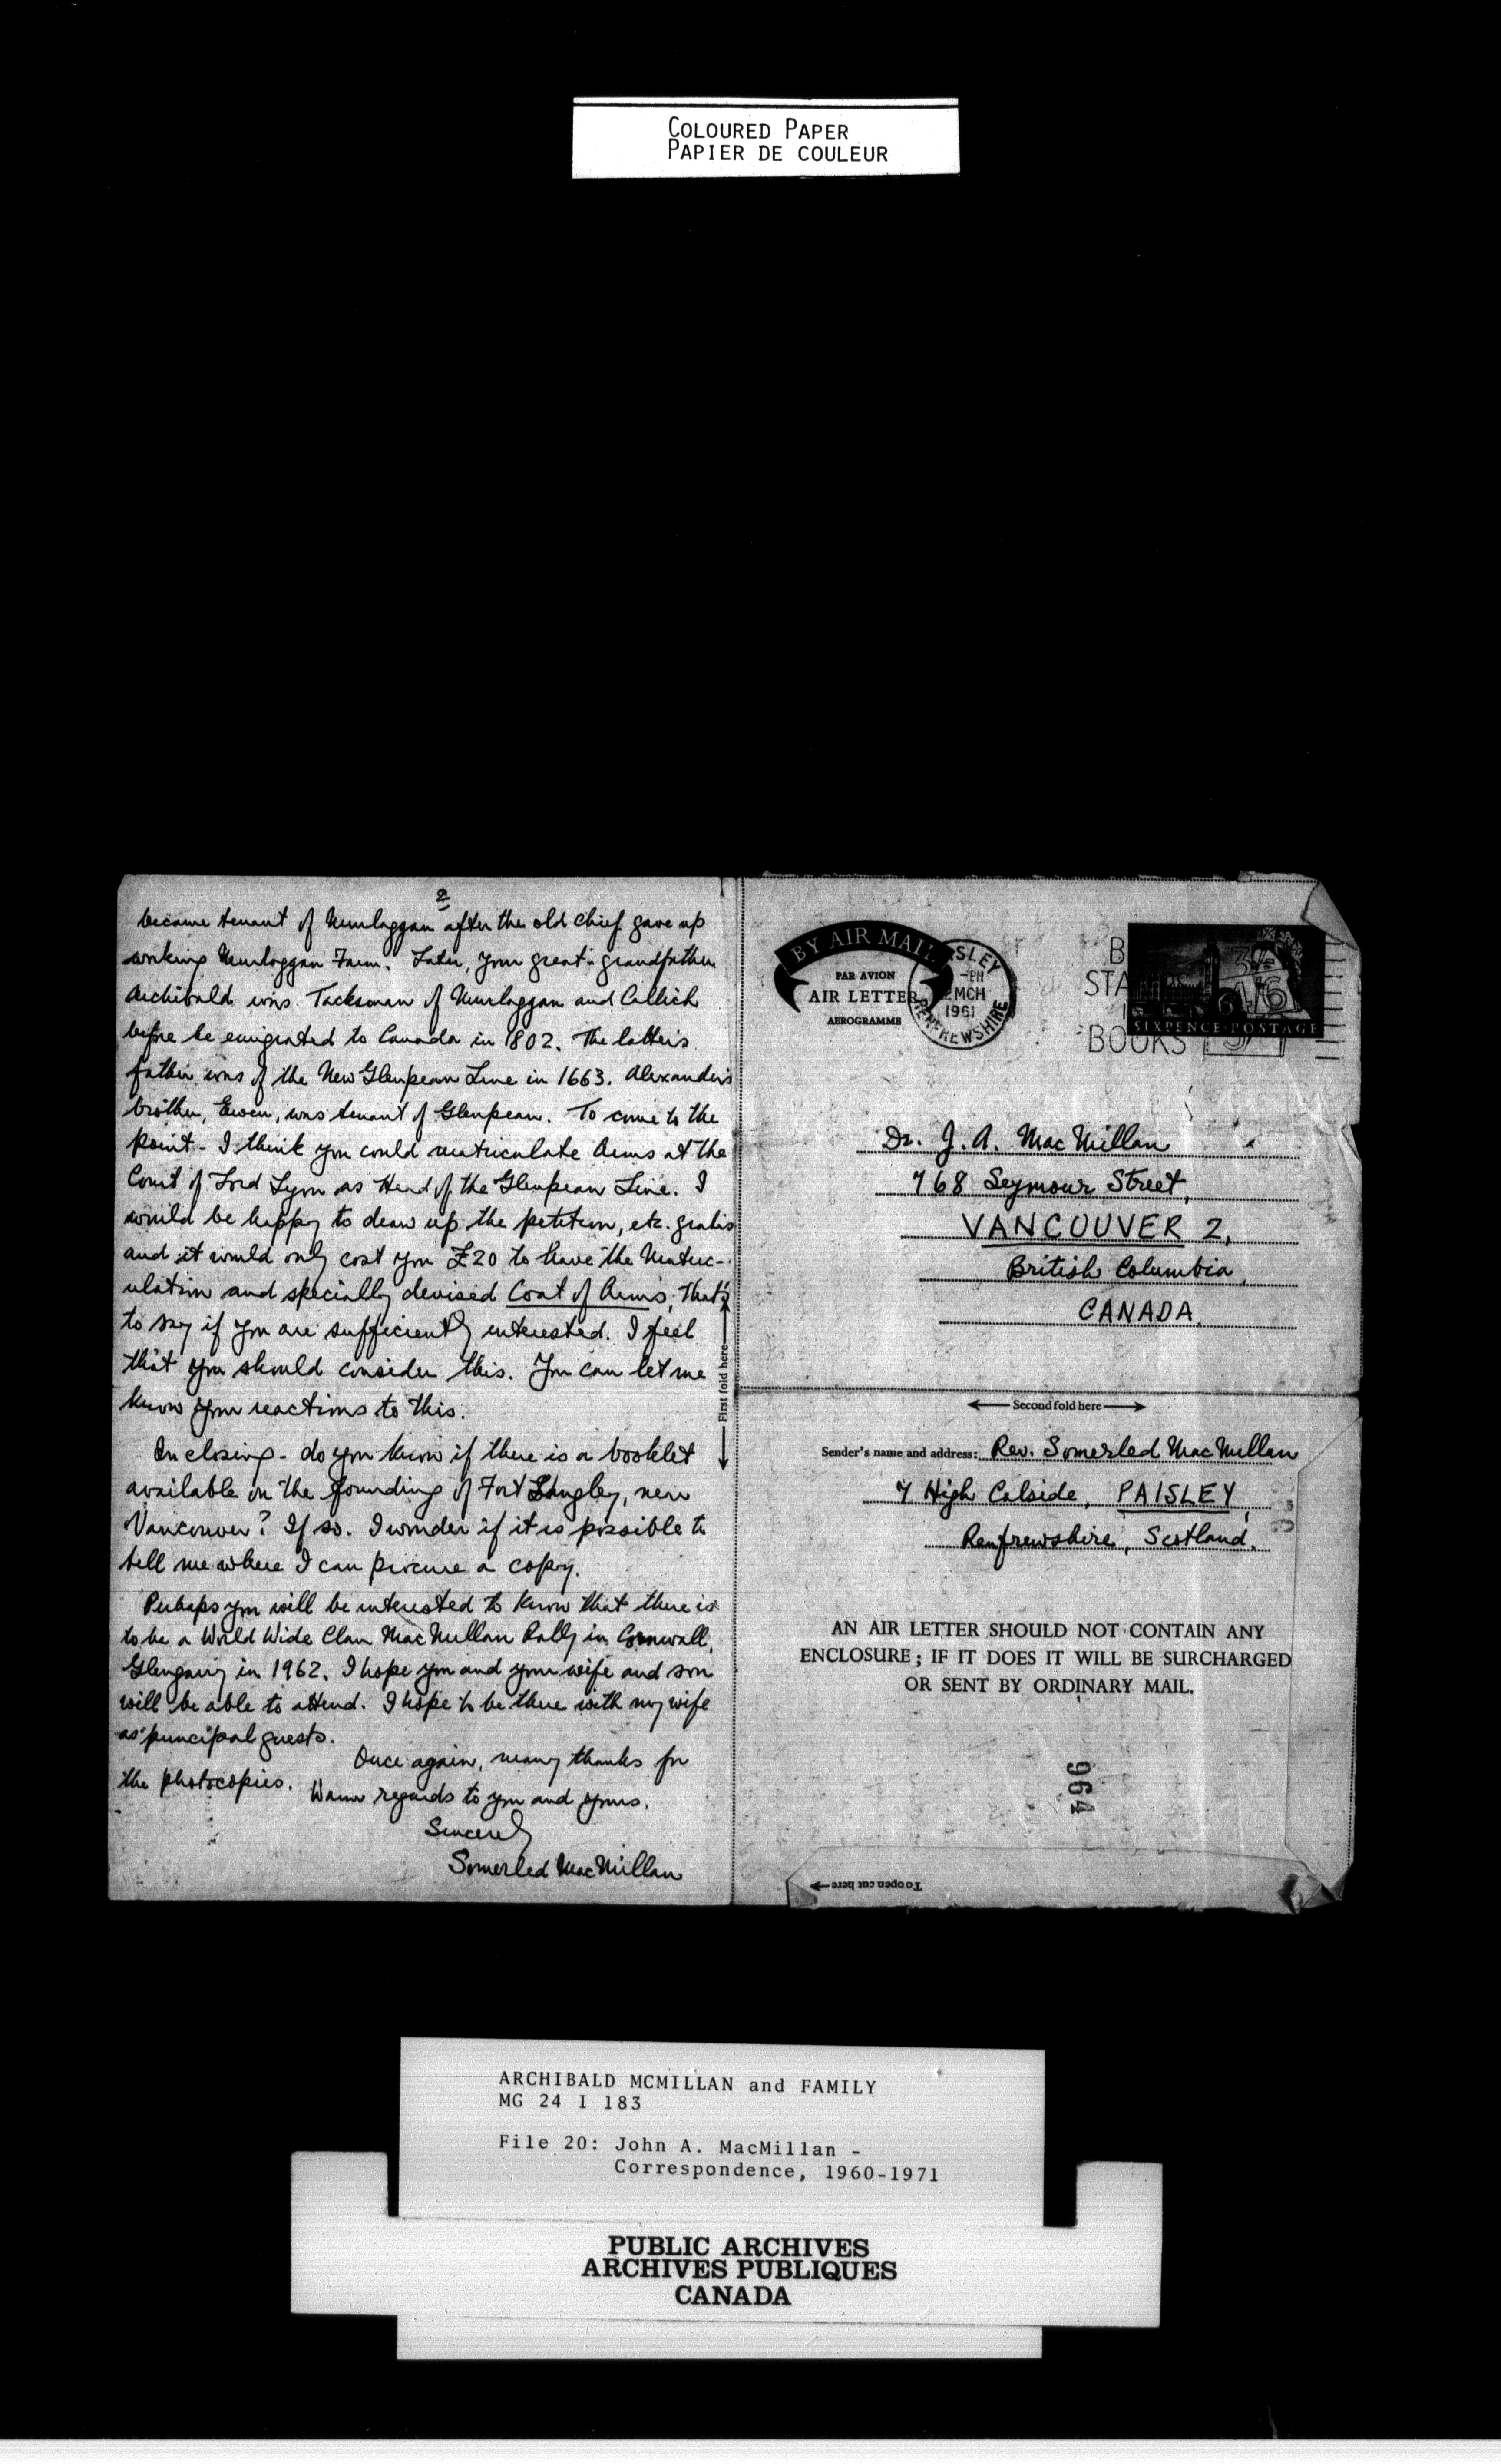 COLOURED PAPER
PAPIER DE COULEUR
2
became tenant of Murlaggan after the old chief gave up
working Murlaggan Farm. Later, your great-grandfather
Archibald was Tacksman of Murlaggan and Callich
before he emigrated to Canada in 1802. The latter's
father was of the New Glenpean Line in 1663. Alexander's
brother, Ewen, was tenant of Glenpean. To come to the
point - I think you could matriculate Arms at the
Court of Lord Lyon as Head of the Glenpean Line. I
would be happy to draw up the petition, etc. gratis
and it would only cost you £20 to have the Matric-
ulation and specially devised Coat of Arms, that's
to say if you are sufficiently interested. I feel
that you should consider this. You can let me
know your reactions to this.
In closing - do you know if there is a booklet
available on the founding of Fort Langley, near
Vancouver? If so. I wonder if it is possible to
tell me where I can procure a copy.
Perhaps you will be interested to know that there is
to be a World Wide Clan MacMillan Rally in Cornwall,
Glengarry in 1962. I hope you and your wife and son
will be able to attend. I hope to be there with my wife
as principal guests.
Once again, many thanks for
the photocopies. Warm regards to you and yours.
Sincerely
Somerled MacMillan
First fold here
BY AIR MAIL
PAR AVION
AIR LETTER
AEROGRAMME
PAISLEY
-PM
2 MCH
1961
RENFREWSHIRE
STA
BOOKS
SIXPENCE POSTAGE
Dr. J. A. MacMillan
768 Seymour Street,
VANCOUVER 2,
British Columbia,
CANADA.
Second fold here
Sender's name and address: Rev. Somerled MacMillan
7 High Calside, PAISLEY,
Renfrewshire, Scotland.
AN AIR LETTER SHOULD NOT CONTAIN ANY
ENCLOSURE; IF IT DOES IT WILL BE SURCHARGED
OR SENT BY ORDINARY MAIL.
964
To open cut here
ARCHIBALD MCMILLAN and FAMILY
MG 24 I 183
File 20: John A. MacMillan -
Correspondence, 1960-1971
PUBLIC ARCHIVES
ARCHIVES PUBLIQUES
CANADA